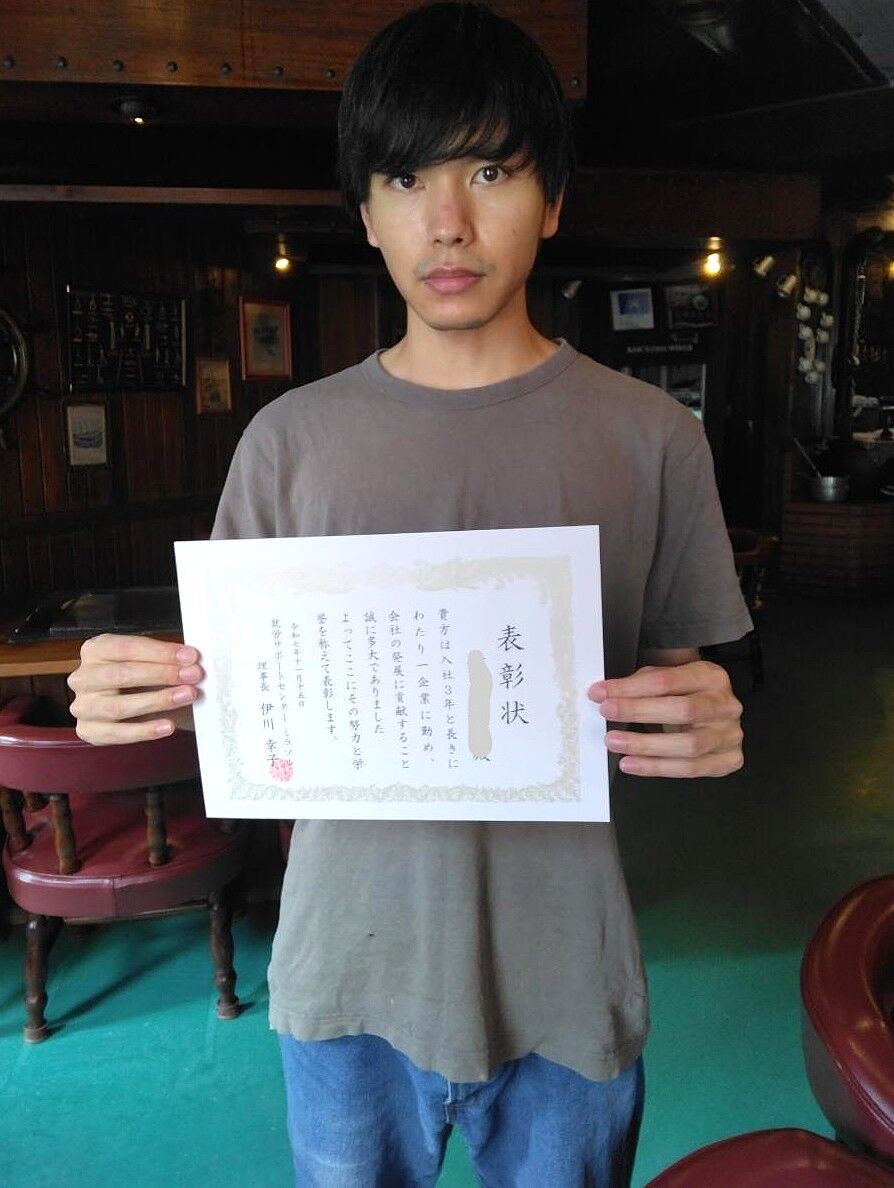 表彰状
殿
貴方は入社3年と長きに
わたり一企業に勤め、
会社の発展に貢献すること
誠に多大でありました
よってここにその努力と栄
誉を称えて表彰します。
令和七年十一月十五日
就労サポートセンターミラソル
理事長 伊川 幸子